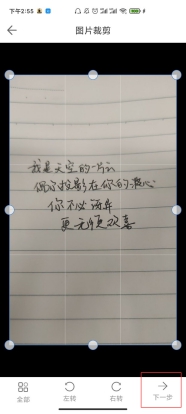 下午2:55
图片裁剪
我是天空的一片云
偶尔投影在你的波心
你不必讶异
更无须欢喜
全部
左转
右转
下一步